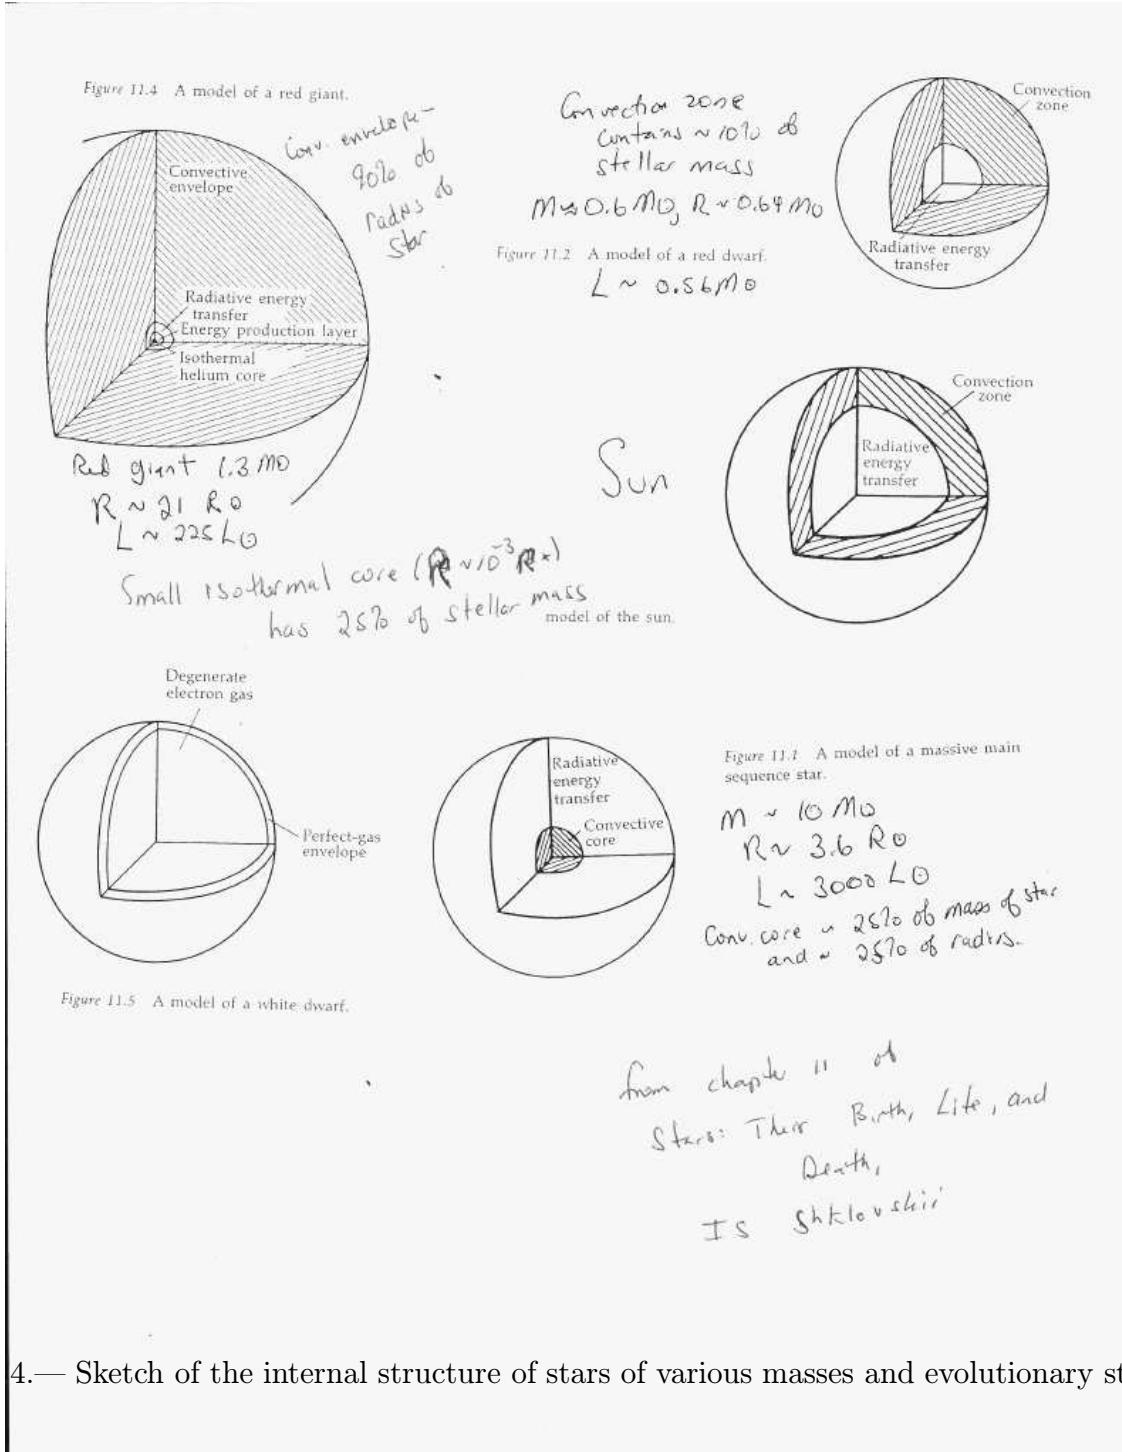 Figure 11.4 A model of a red giant.
Conv. envelope –
90% of
radius of
star
Convective
envelope
Radiative energy
transfer
Energy production layer
Isothermal
helium core
Red giant 1.3 M⊙
R ~ 21 R⊙
L ~ 225 L⊙
Small isothermal core (R ~ 10⁻³ R*)
has 25% of stellar mass
Convection zone
contains ~ 10% of
stellar mass
M ≈ 0.6 M⊙, R ~ 0.64 M⊙
Figure 11.2 A model of a red dwarf.
L ~ 0.56 M⊙
Convection
zone
Radiative energy
transfer
Sun
Convection
zone
Radiative
energy
transfer
model of the sun.
Degenerate
electron gas
Perfect-gas
envelope
Figure 11.5 A model of a white dwarf.
Radiative
energy
transfer
Convective
core
Figure 11.1 A model of a massive main
sequence star.
M ~ 10 M⊙
R ~ 3.6 R⊙
L ~ 3000 L⊙
Conv. core ~ 25% of mass of star
and ~ 25% of radius.
from chapter 11 of
Stars: Their Birth, Life, and
Death,
IS Shklovskii
4.— Sketch of the internal structure of stars of various masses and evolutionary st